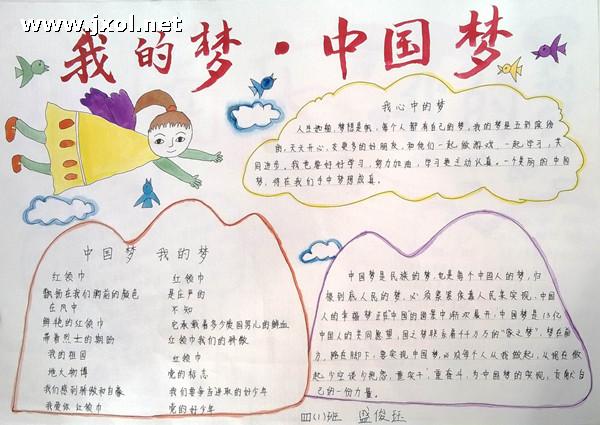 www.jxol.net
我的梦·中国梦
我心中的梦
人生如船,梦想是帆,每个人都有自己的梦,我的梦是五彩缤纷
的,天天开心,交更多的好朋友,和他们一起做游戏,一起学习,共
同进步。我也要好好学习,努力加油,学习更主动认真。一个美丽的中国
梦,将在我们手中梦想成真。
中国梦 我的梦
红领巾
飘扬在我们胸前的颜色
在风中
鲜艳的红领巾
带着烈士的期盼
我的祖国
地大物博
我们感到骄傲和自豪
我爱你红领巾
红领巾
是庄严的
不知
它承载着多少爱国男儿的鲜血
红领巾我们的骄傲
红领巾
党的标志
我们要争当进取的好少年
党的好少年
中国梦是民族的梦,也是每个中国人的梦,归
根到底人民的梦,必须紧紧依靠人民来实现,中国
人的幸福梦正在中国的国策中渐次展开,中国梦是13亿
中国人的共同愿望,国之梦联系着千千万万的“家之梦”,梦在前
方,路在脚下,要实现中国梦,必须每个人从我做起,从现在做
起,少空谈,少抱怨,重实干,重奋斗,为中国梦的实现,贡献自
己的一份力量。
四(1)班 盛俊